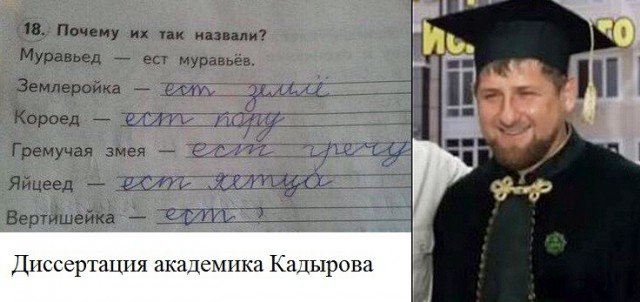 18. Почему их так назвали?
Муравьед — ест муравьёв.
Землеройка — ест землё
Короед — ест кору
Гремучая змея — ест гречу
Яйцеед — ест яетца
Вертишейка — ест ?
Диссертация академика Кадырова